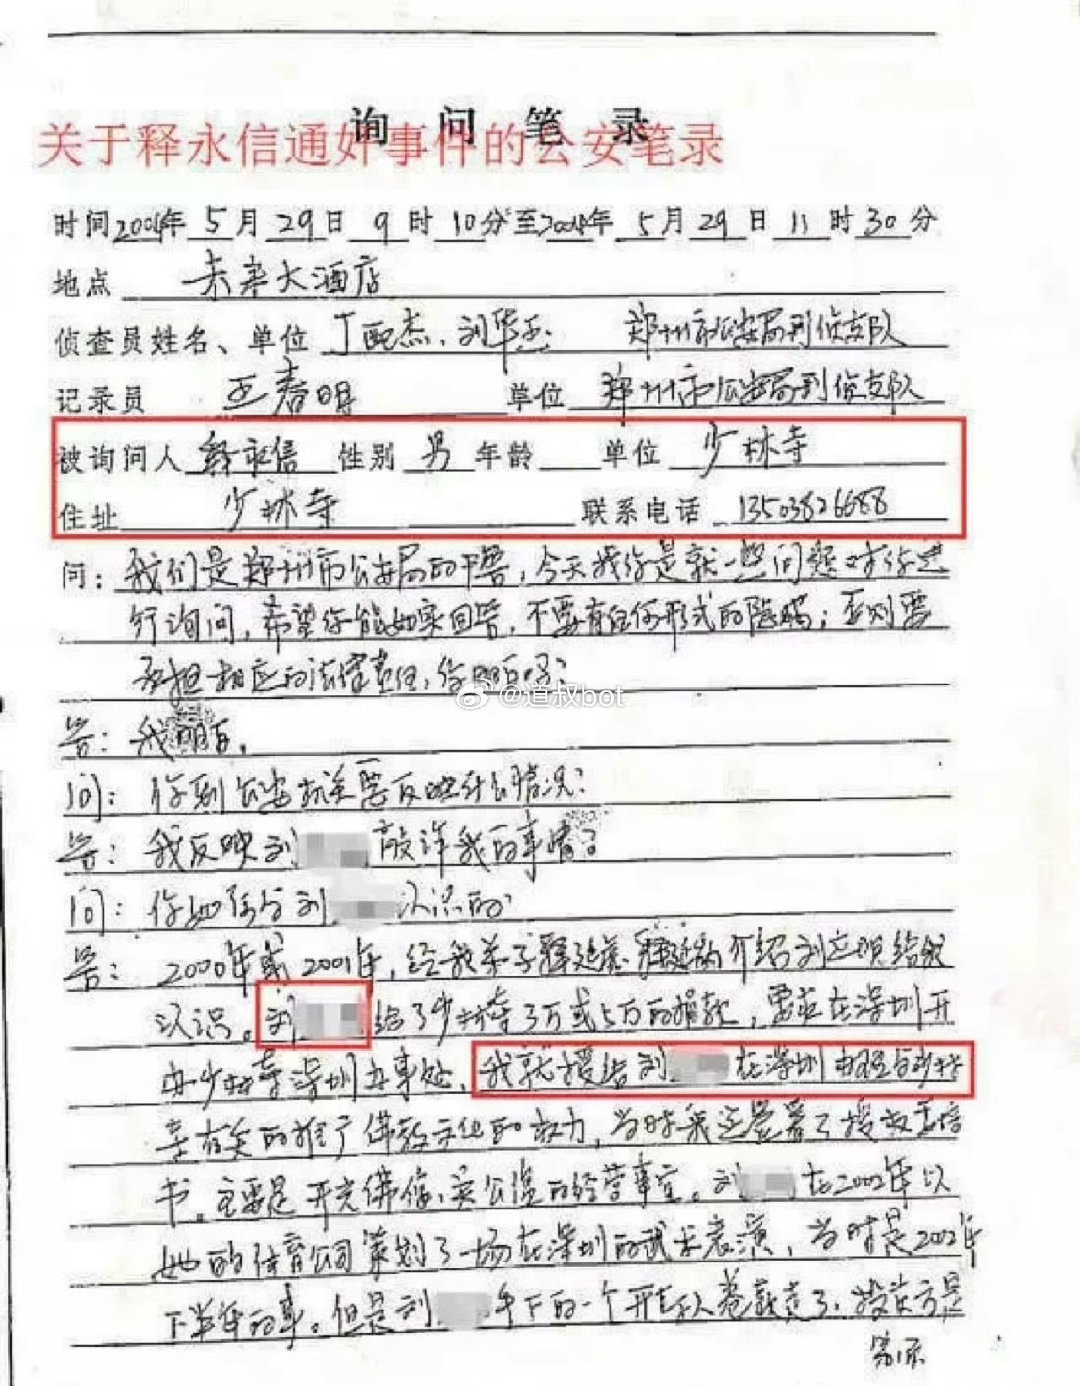 询问笔录
关于释永信通奸事件的公安笔录
时间2004年5月29日9时10分至2004年5月29日11时30分
地点 未来大酒店
侦查员姓名、单位 丁 杰、刘华 郑州市公安局刑侦支队
记录员 王春明 单位 郑州市公安局刑侦支队
被询问人 释永信 性别 男 年龄 单位 少林寺
住址 少林寺 联系电话 13503826688
问：我们是郑州市公安局的干警，今天找你是就一些问题对你进
行询问，希望你能如实回答，不要有任何形式的隐瞒；否则要
承担相应的法律责任，你明白吗？
@道叔bot
答：我明白。
问：你到公安机关要反映什么情况？
答：我反映刘 敲诈我的事情？
问：你如何与刘 认识的
答：2000年或2001年，经我弟子释延 释延 介绍刘 给我
认识。刘 给了少林寺3万或5万的捐款，要求在深圳开
办少林寺深圳办事处，我就授给刘 在深圳办理与少林
寺有关的推广佛教文化的权力，当时我还签署了授权委信
书。主要是开完佛像、实公 的经营事宜。刘 在2002年以
她的体育公司策划了一场在深圳的武术表演，当时是2002年
下半年的事。但是刘 手下的一个开 人卷款走了，投资方是